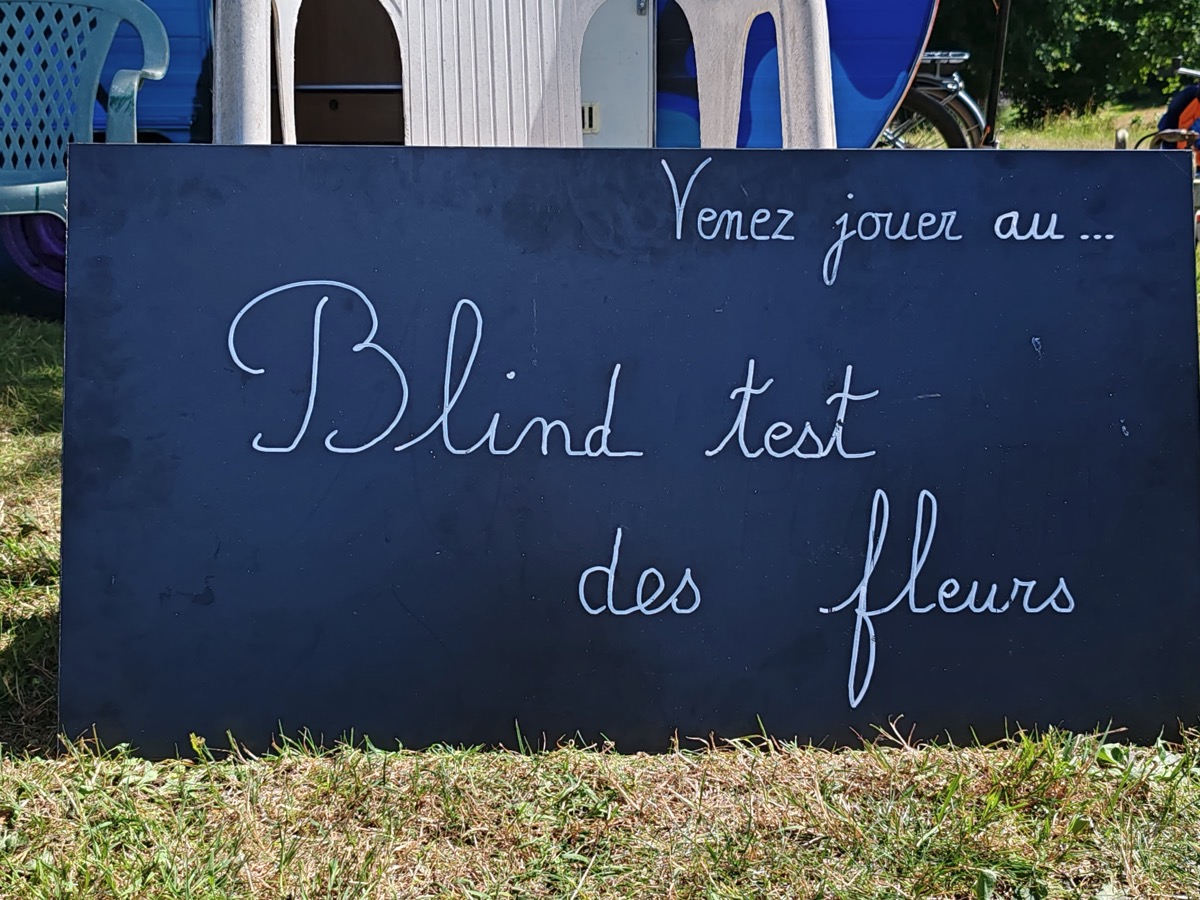 Venez jouer au...
Blind test
des fleurs